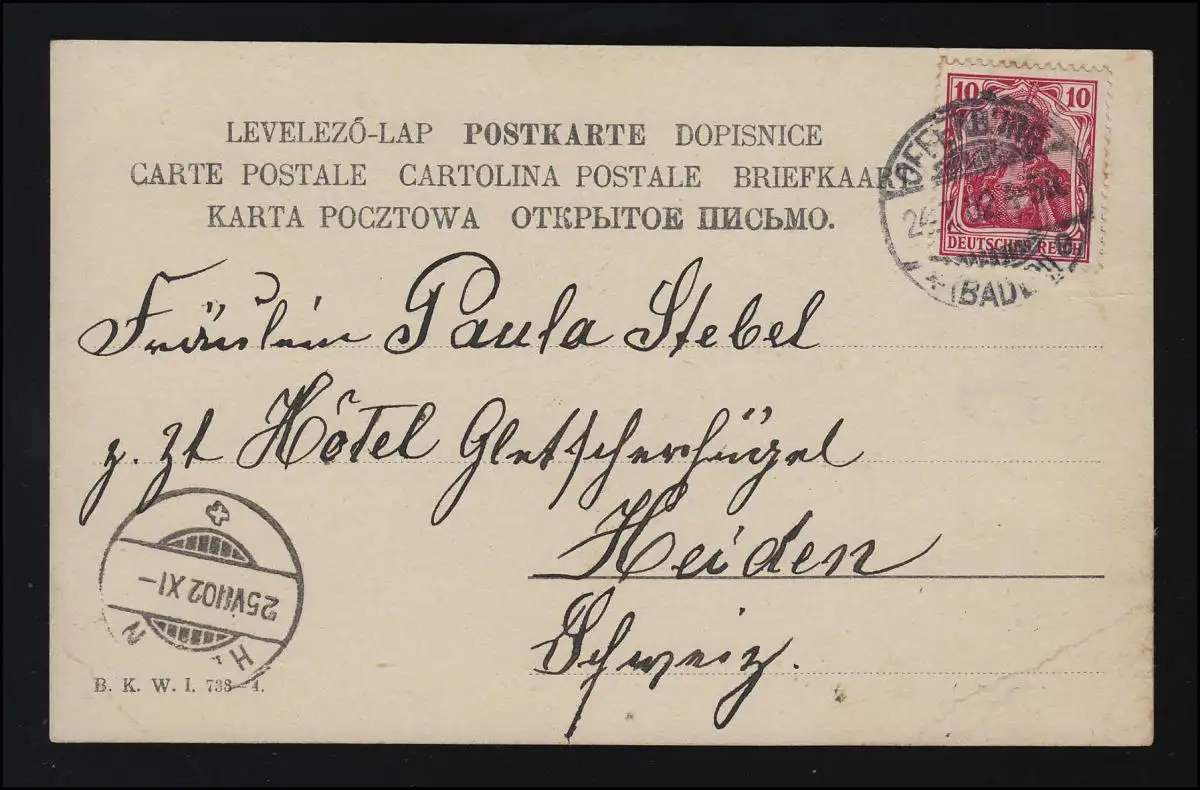 LEVELEZŐ-LAP POSTKARTE DOPISNICE
CARTE POSTALE CARTOLINA POSTALE BRIEFKAART
KARTA POCZTOWA ОТКРЫТОЕ ПИСЬМО.
10 10
DEUTSCHES REICH
OFFENBURG
(BADEN)
Fräulein Paula Stebel
z. Zt Hôtel Gletscherhügel
Heiden
Schweiz.
25 VII 02 XI–
B. K. W. I. 738–4.